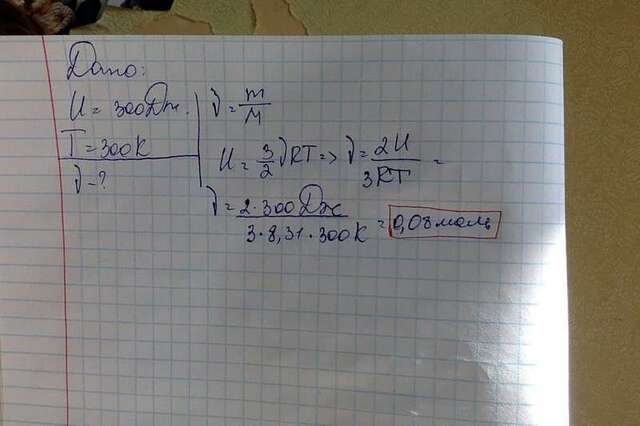 Дано:
U = 300Дж.
T = 300К
ν - ?
ν = m/M
U = 3/2 νRT => ν = 2U/3RT =
ν = 2·300Дж/3·8,31·300К = 0,08 моль